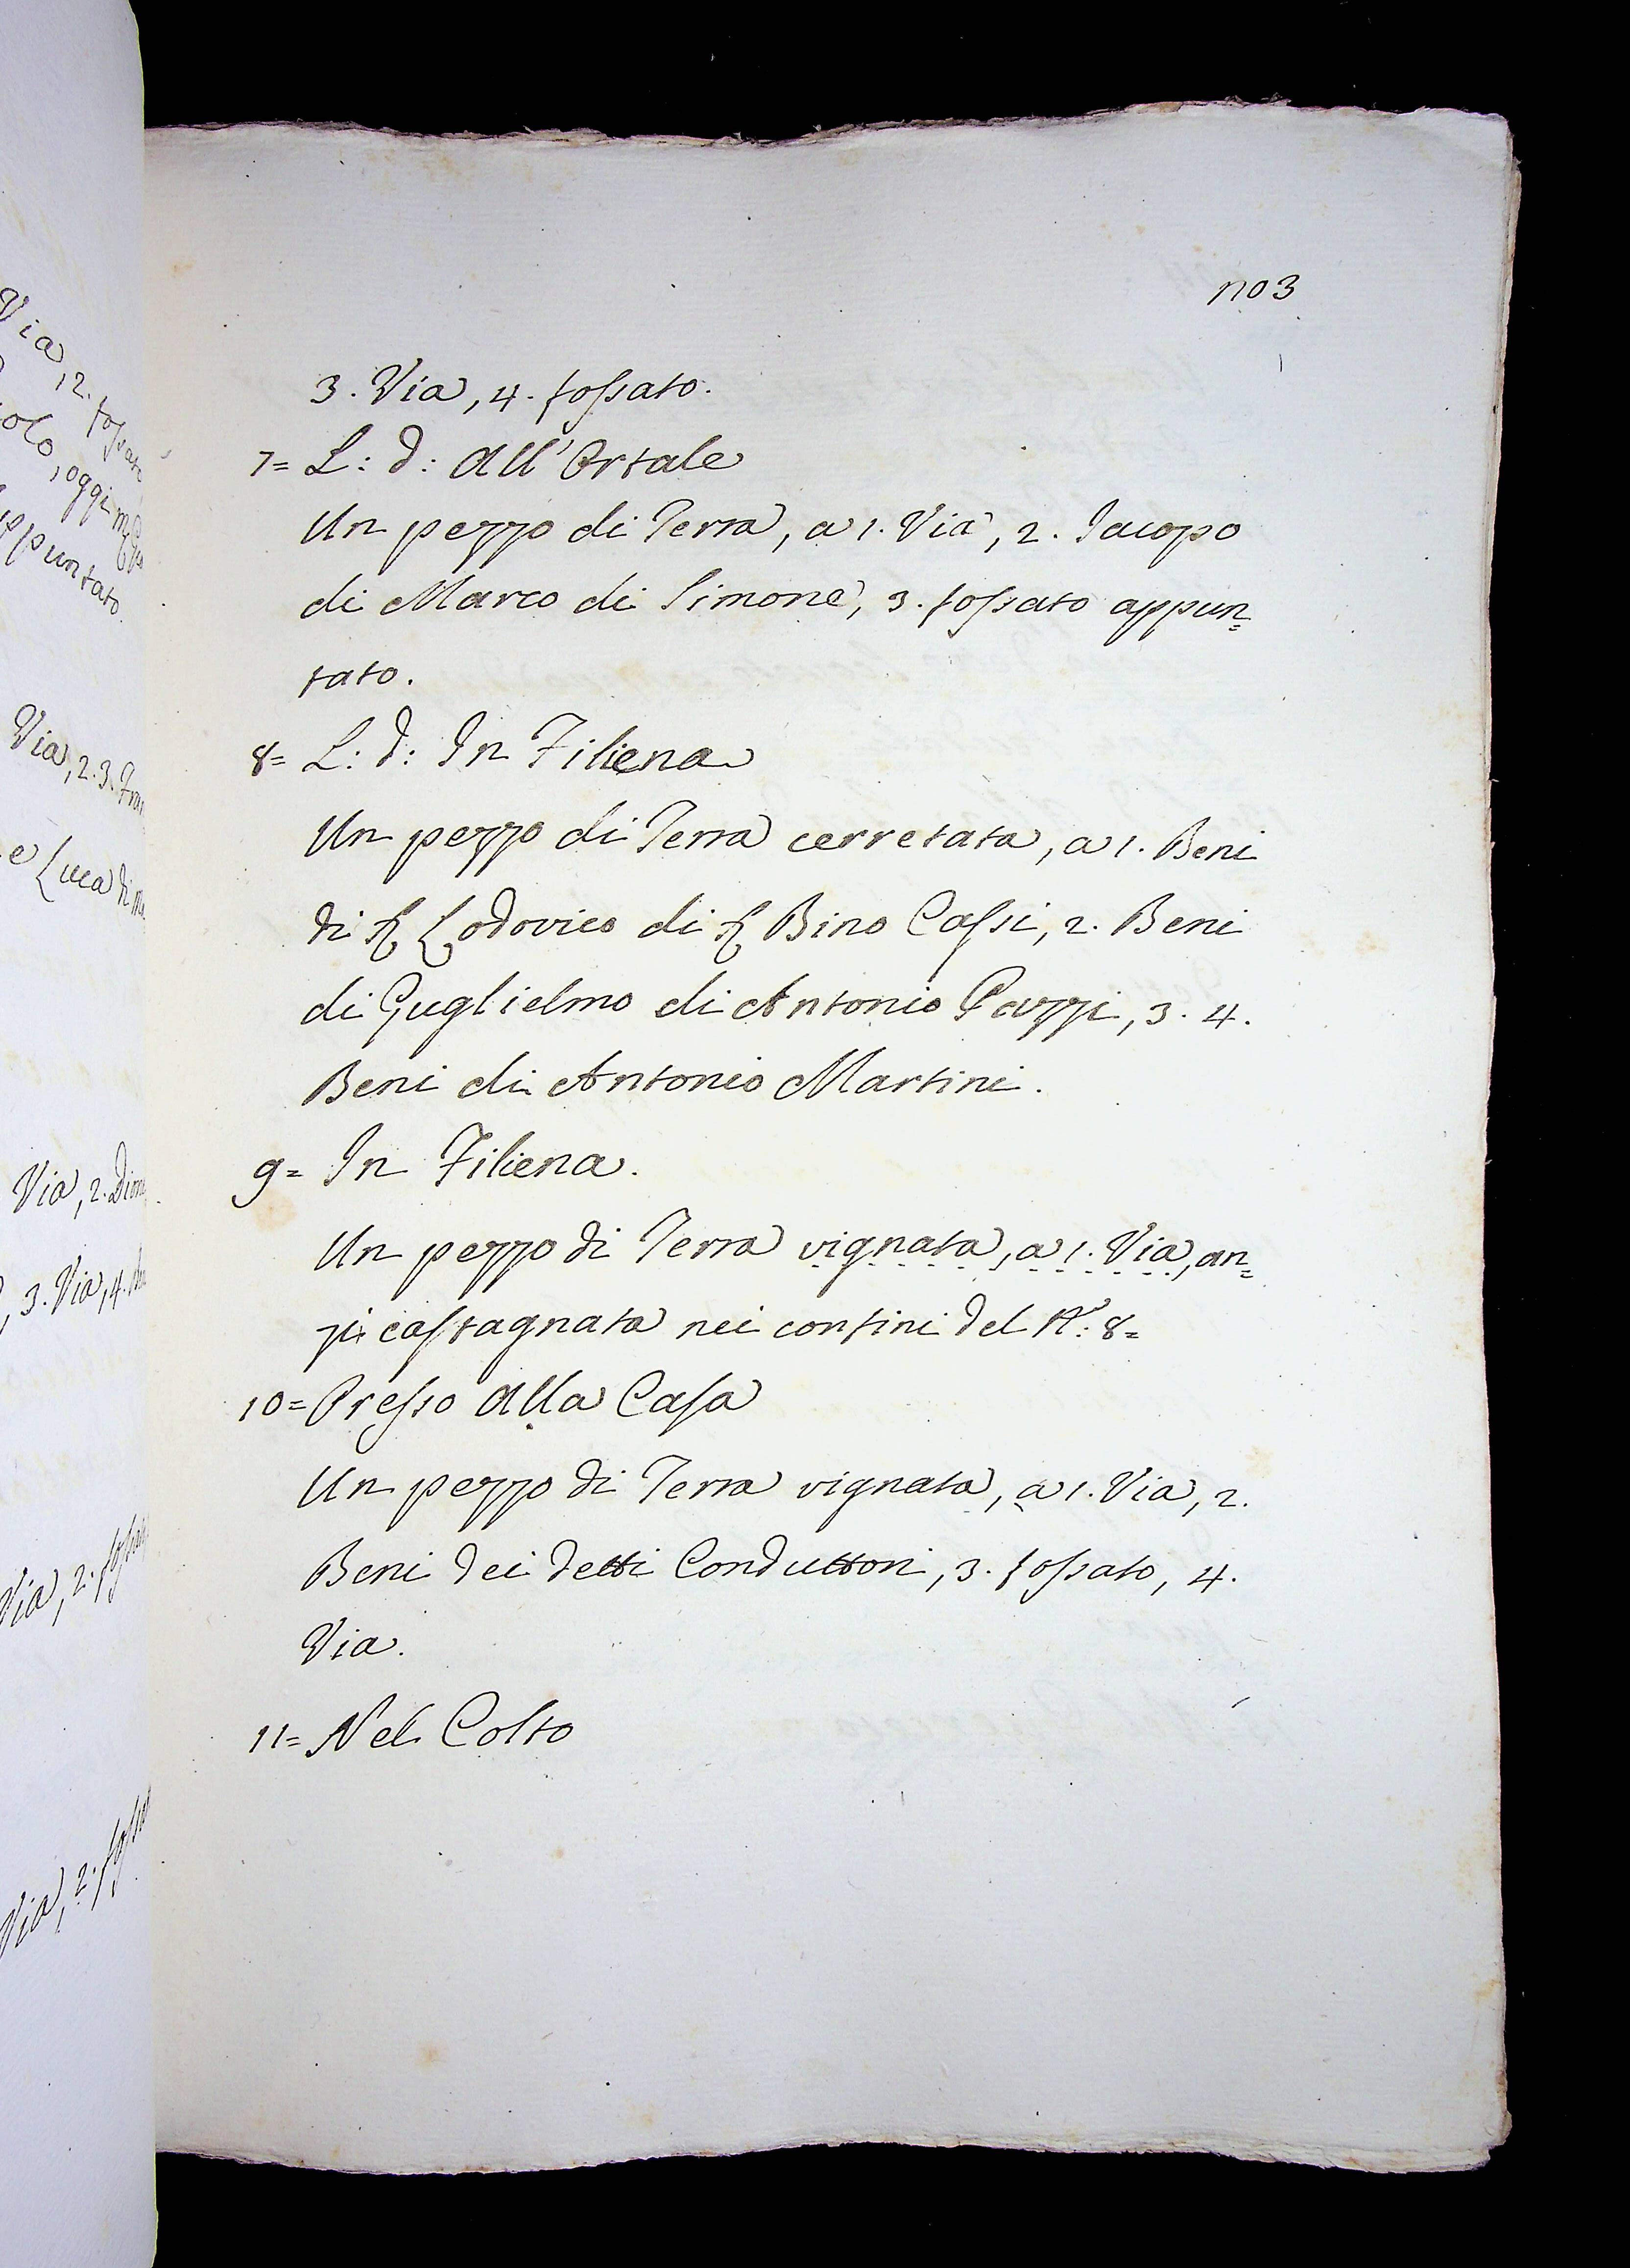 Via, 2. fossato
olo, oggi
appuntato.
Via, 2. 3. Fran
e Luca di
Via, 2. Dion
3. Via, 4.
Via, 2. fossato
Via, 2. fossa
no3
3. Via, 4. fossato.
7= L: d: All'Ortale
Un pezzo di Terra, a 1. Via, 2. Iacopo
di Marco di Simone, 3. fossato appun=
tato.
8= L: d: In Filiena
Un pezzo di Terra cerretata, a 1. Beni
di S. Lodovico di S. Bino Cassi, 2. Beni
di Guglielmo di Antonio Pazzi, 3. 4.
Beni di Antonio Martini.
9= In Filiena.
Un pezzo di Terra vignata, a 1. Via, an=
zi castagnata nei confini del N.º: 8=
10= Presso alla Casa
Un pezzo di Terra vignata, a 1. Via, 2.
Beni dei detti Conduttori, 3. fossato, 4.
Via.
11= Nel Colto